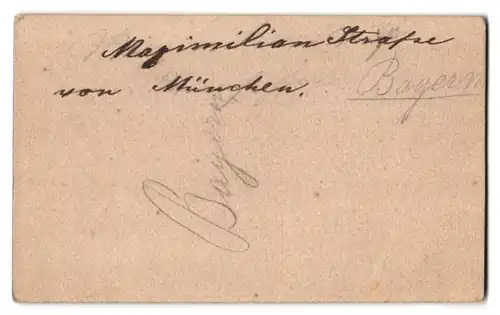 Maximilian Straße
von München.
Bayern
Bayern